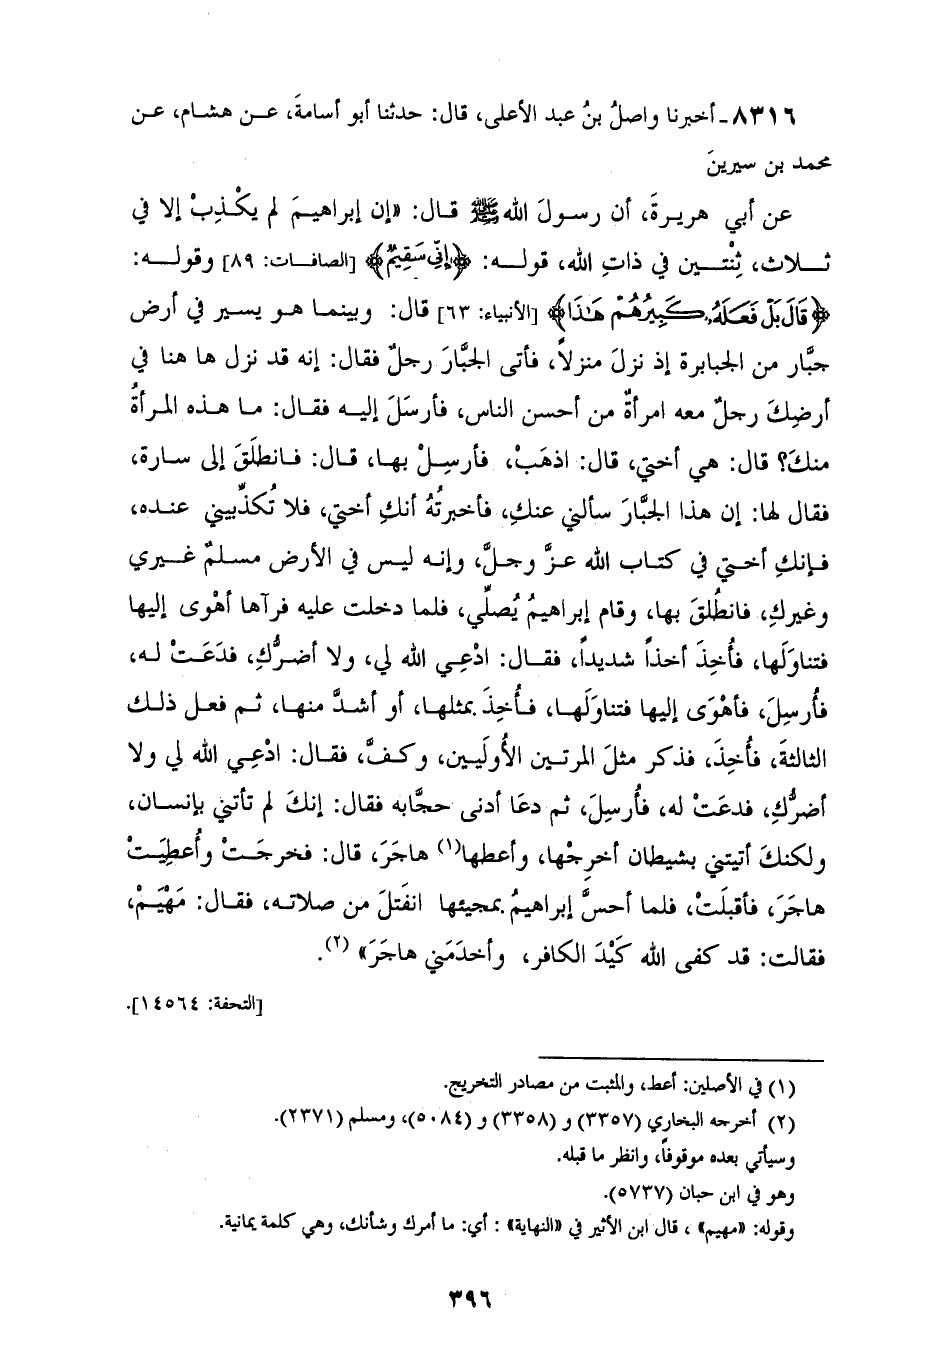 ٨٣١٦ـ أخبرنا واصلُ بنُ عبد الأعلى، قال: حدثنا أبو أسامةَ، عن هشام، عن
محمد بن سيرينَ
عن أبي هريرةَ، أن رسولَ الله ﷺ قال: «إن إبراهيمَ لم يكْذِبْ إلا في
ثلاث، ثِنْتين في ذاتِ الله، قوله: ﴿إِنِّي سَقِيمٌ﴾ [الصافات: ٨٩] وقوله:
﴿قَالَ بَلْ فَعَلَهُ كَبِيرُهُمْ هَٰذَا﴾ [الأنبياء: ٦٣] قال: وبينما هو يسير في أرض
جبَّار من الجبابرة إذ نزلَ منزلاً، فأتى الجبَّارَ رجلٌ فقال: إنه قد نزل ها هنا في
أرضِكَ رجلٌ معه امرأةٌ من أحسن الناس، فأرسَلَ إليه فقال: ما هذه المرأةُ
منكَ؟ قال: هي أختي، قال: اذهَبْ، فأرسِلْ بها، قال: فانطلَقَ إلى سارة،
فقال لها: إن هذا الجبَّارَ سألني عنكِ، فأخبرتُهُ أنكِ أختي، فلا تُكذِّبيني عنده،
فإنكِ أختي في كتاب الله عزَّ وجلَّ، وإنه ليس في الأرض مسلمٌ غيري
وغيركِ، فانطُلقَ بها، وقام إبراهيمُ يُصلِّي، فلما دخلت عليه فرآها أهْوى إليها
فتناوَلَها، فأُخِذَ أخذاً شديداً، فقال: ادْعِي الله لي، ولا أضرُّكِ، فدَعَتْ له،
فأُرسِلَ، فأهْوَى إليها فتناوَلَها، فأُخِذَ بمثلها، أو أشدَّ منها، ثم فعل ذلك
الثالثةَ، فأُخِذَ، فذكر مثلَ المرتين الأُولَيين، وكفَّ، فقال: ادْعِي الله لي ولا
أضرُّكِ، فدعَتْ له، فأُرسِلَ، ثم دعَا أدنى حجَّابه فقال: إنكَ لم تأتني بإنسان،
ولكنكَ أتيتني بشيطان أخرِجْها، وأعطها(١) هاجَرَ، قال: فخرجَتْ وأُعطِيَتْ
هاجَرَ، فأقبلَتْ، فلما أحسَّ إبراهيمُ بمجيئها انفَتلَ من صلاته، فقال: مَهْيَمْ،
فقالت: قد كفى الله كَيْدَ الكافر، وأخدَمَني هاجَرَ» (٢).
[التحفة: ١٤٥٦٤].
(١) في الأصلين: أعط، والمثبت من مصادر التخريج.
(٢) أخرجه البخاري (٣٣٥٧) و (٣٣٥٨) و (٥٠٨٤)، ومسلم (٢٣٧١).
وسيأتي بعده موقوفاً، وانظر ما قبله.
وهو في ابن حبان (٥٧٣٧).
وقوله: «مهيم» ، قال ابن الأثير في «النهاية» : أي: ما أمرك وشأنك، وهي كلمة يمانية.
٣٩٦